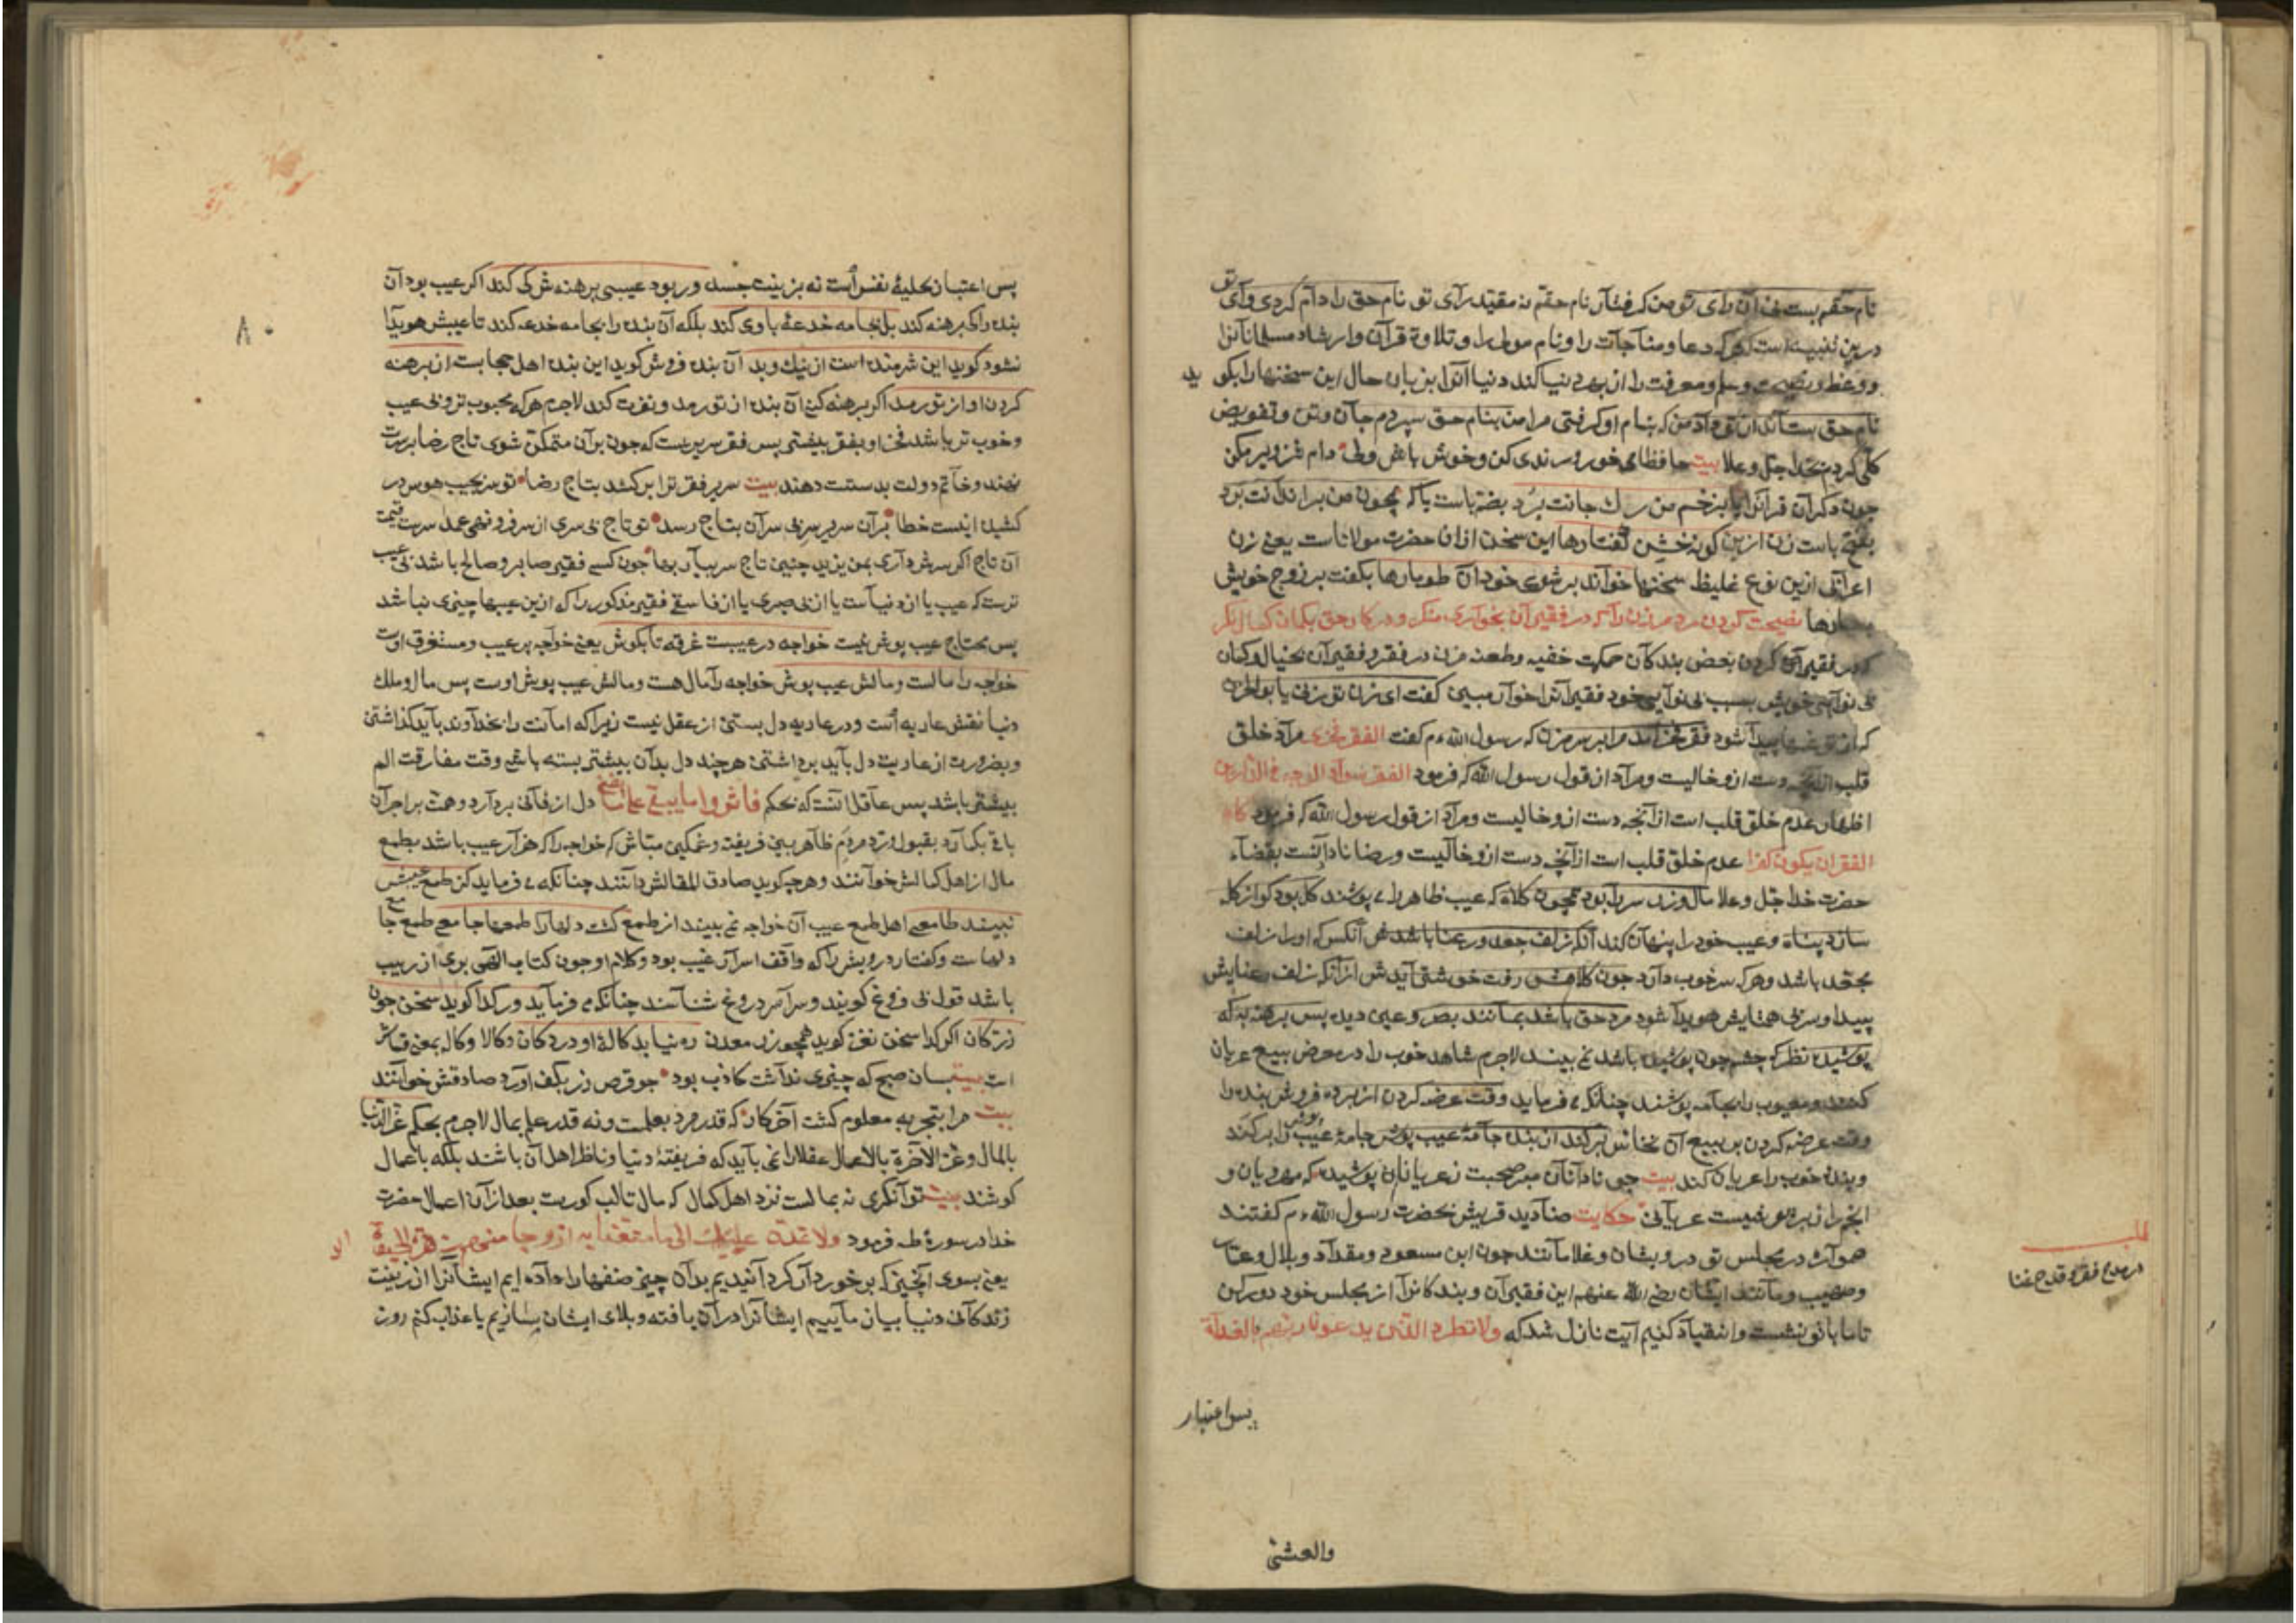 نام حقم بست نی آن رای تو من کرفتار نام حقم نه مقید رآی تو نام حق را دام کردی وآی تو
درین تنبیه است هرکه دعا و مناجات را و نام مولی را و تلاوة قرآن و ارشاد مسلمانانرا
و وعظ و نصیحت و علم و معرفت را از بهر دنیا کند دنیا آنرا بزبان حال این سخنها را بکوید
نام حق بستاند از تو داد من که بنام او کرفتی مرا من بنام حق سپردم جان و تن و تفویض
کلی کردم بخدا جل وعلا بیت حافظا می خور و رندی کن و خوش باش ولی دام تزویر مکن
چون دکران قرآنرا یا بزخم من رک جانت برد یا که همچون من بزندانت برد
ازین کونه خشن کفتارها این سخن ازان حضرت مولاناست یعنی زن
اعرابی ازین نوع غلیظ سخنها خواند بر شوی خود آن طومارها بکفت بر زوج خویش
نصیحت کردن مرد مر زن را که در فقیران بخواری منکر و در کار حق بکمان کمال نکر
که در فقیری کردن بعض بندکان حمکت خفیه و طعنه مزن در فقر و فقیران بخیال و کمان
بی نوایی خویش بسبب بی نوایی خود فقیرانرا خوار مبین کفت ای زن تو زنی یا بو الحزن
که از تو غمها پیدا شود فقر فخر آمد مرا بر سر مزن که رسول الله ءم کفت الفقر فخری مراد خلق
قلب از آنچه دست ازو خالیست و مراد از قول رسول الله که فرمود الفقر سواد الوجه فی الدارین
اظهار عدم خلق قلب است از آنچه دست ازو خالیست و مراد از قول رسول الله که فرمود کاد
الفقر ان یکون کفرا عدم خلق قلب است از آنچه دست ازو خالیست و رضا نادادنست بقضاء
حضرت خدا جل وعلا مال و زر سر را بود همچون کلاه که عیب ظاهر را می پوشند کل بود کو از کله
سازد پناه و عیب خود را پنهان کند آنکه زلف جعد و رعنا باشدش آنکس که اورا زلف
مجعد باشد و هرکه سر خوب دارد چون کلاهش رفت خوشتر آیدش از آنکه زلف رعنایش
پیدا و سر بی همتایش هویدا شود مرد حق باشد بمانند بصر و عین دیده پس برهنه به که
پوشیده نظر که چشم چون پوشیده باشد نمی بیند لاجرم شاهد خوب را در معرض بیع عریان
کنند و معیوب را بجامه پوشند چنانکه می فرماید وقت عرضه کردن آن برده فروش بنده را
وقت عرضه کردن بر بیع آن نخاس برکند از بنده جامه عیب پوش جامه عیب پوش را برکند
و بنده خوب را عریان کند بیت چو نادانان مبر صحبت ز عریانان پوشیده که مهر دیان و
انجم را زیور نیست عریانی حکایت صنادید قریش بحضرت رسول الله ءم کفتند
همواره در مجلس تو درویشان و غلامانند چون ابن مسعود و مقداد و بلال و عمار
و صهیب و مانند ایشان رضی الله عنهم این فقیران و بندکانرا از مجلس خود دور کن
تا ما با تو نشست و انقیاد کنیم آیت نازل شد که ولا تطرد الذین یدعون ربهم بالغداة
والعشی
پس اعتبار
در مدح فقر و قدح غنا
۸۰
پس اعتبار بحلیهٔ نفس است نه بزینت جسد ور بود عیبی برهنه ش کی کند اکر عیب بود آن
بنده را کی برهنه کند بل بجامه خدعهٔ با وی کند بلکه آن بنده را بجامه خدعه کند تا عیبش هویدا
نشود کوید این شرمنده است از نیک و بد آن بنده فروش کوید این بنده اهل حجابست از برهنه
کردن او از تو رمد اکر برهنه کنی آن بنده از تو رمد و نفرت کند لاجرم هرکه محبوب تر و بی عیب
و خوب تر باشد فخر او بفقر بیشتر پس فقر سریریست که چون بر آن متمکن شوی تاج رضا بر سرت
نهند و خاتم دولت بدستت دهند بیت سریر فقر ترا برکشد بتاج رضا تو سر بجیب هوس در
کشیده اینست خطا بر آن سریر سر بی سران بتاج رسد تو تاج بی سری از سر فرو نهی عمدا سرت قیمت
آن تاج اکر سرش داری بمن یزید چنین تاج سر بیار بها چون کسی فقیر صابر و صالح باشد بی عیب
ترست که عیب یا از دنیاست یا از بی صبری یا از فاسقی فقیر مذکور را که ازین عیبها چیزی نباشد
پس محتاج عیب پوش نیست خواجه در عیبست غرقه تا بکوش یعنی خواجه پر عیب و مستغرق اوست
خواجه را مالست و مالش عیب پوش خواجه را مال هست و مالش عیب پوش اوست پس مال و ملک
دنیا نقش عاریه است و در عاریه دل بستن از عقل نیست زیرا که امانت را بخداوند باید کذاشتن
و بضرورت از عاریت دل باید برداشتن هر چند دل بدان بیشتر بسته باشی وقت مفارقت الم
بیشتر باشد پس عاقل آنست که بحکم فآثروا ما یبقی علی ما یفنی دل از فانی بردارد و همت بر اجران
باقی بکمارد بقبول و رد مردم ظاهر بین فریفته و غمکین مباش که خواجه را که هزار عیب باشد بطمع
مال از اهل کمالش خوانند و هرچه کوید صادق المقالش دانند چنانکه می فرماید کز طمع عیبش
نبیند طامعی اهل طمع عیب آن خواجه نمی بیند از طمع کشت دلها را طمعها جامعی طمع جامع
دلهاست و کفتار درویش را که واقف اسرار غیب بود و کلام او چون کتاب الهی بری از ریب
باشد قول بی فروغ کویند و سراسر دروغ شناسند چنانکه می فرماید ور کدا کوید سخن چون
زر کان اکر کدا سخن نغز کوید همچو زر معدن ره نیابد کالهٔ او در دکان کالا و کاله بمعنی قماش
است بیت بسان صبح که چیزی نداشت کاذب بود جو قرص زر بکف آورد صادقش خوانند
بیت مرا بتجربه معلوم کشت آخر کار که قدر مرد بعلمست و نه قدر علم بمال لاجرم بحکم عز الدنیا
بالمال و عز الآخرة بالاعمال عقلا را نمی باید که فریفتهٔ دنیا و ناظر اهل آن باشند بلکه باعمال
کوشند بیت توانکری نه بمالست نزد اهل کمال که مال تا لب کورست بعد از آن اعمال حضرت
خدا در سورهٔ طه فرمود ولا تمدن عینیک الی ما متعنا به ازواجا منهم زهرة الحیوة
یعنی بسوی آنچیزی که برخوردار کردانیدیم بدان چیز صنفها را داده ایم ایشانرا از زینت
زندکانی دنیا بیان ماییم ایشانرا در آن یافته و بلای ایشان سازیم یا عذاب کنم روز